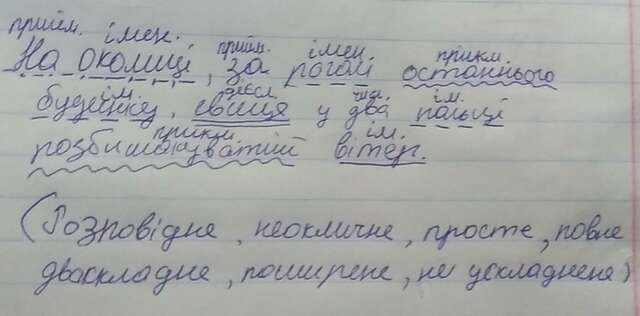 прийм. імен. прийм. імен. прикм.
На околиці, за рогом останнього
ім. дієсл. чис. ім.
будиночку, свище у два пальці
прикм. ім.
розбишакуватий вітер.
(Розповідне, неокличне, просте, повне
двоскладне, поширене, не ускладнене)